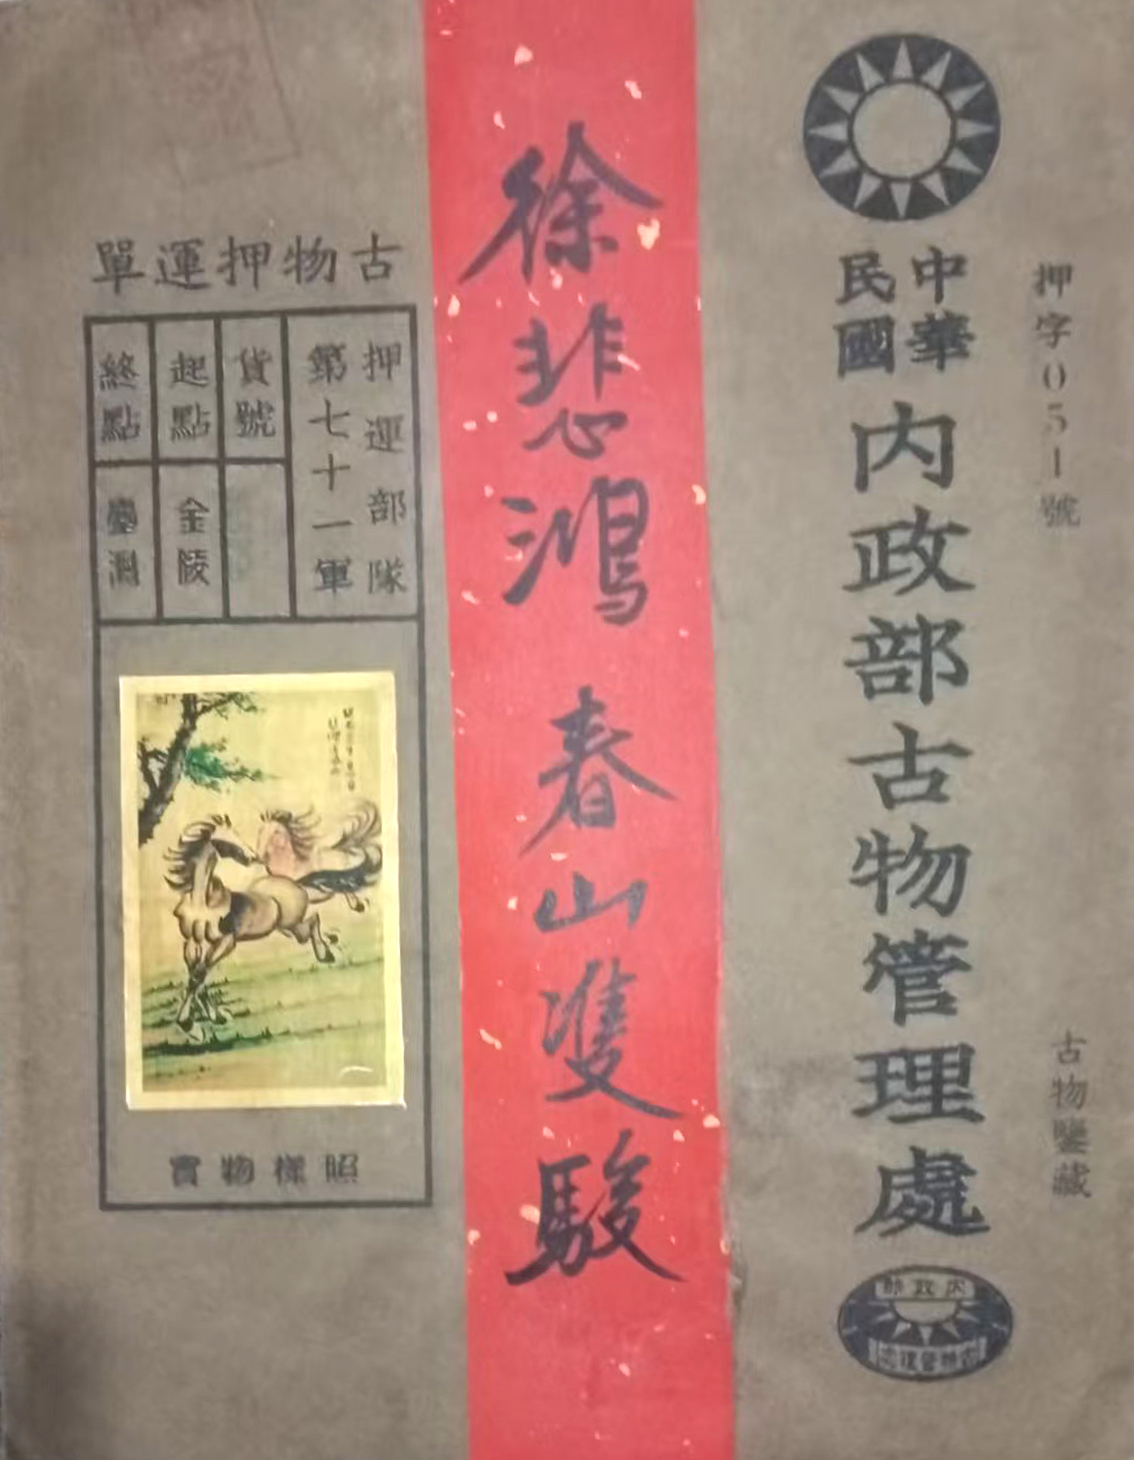 押字051號
古物鑒藏
中華
民國
内政部古物管理處
内政部
古物管理處
徐悲鴻 春山雙駿
古物押運單
押運部隊
第七十一軍
貨號
起點
金陵
終點
臺灣
照樣物實